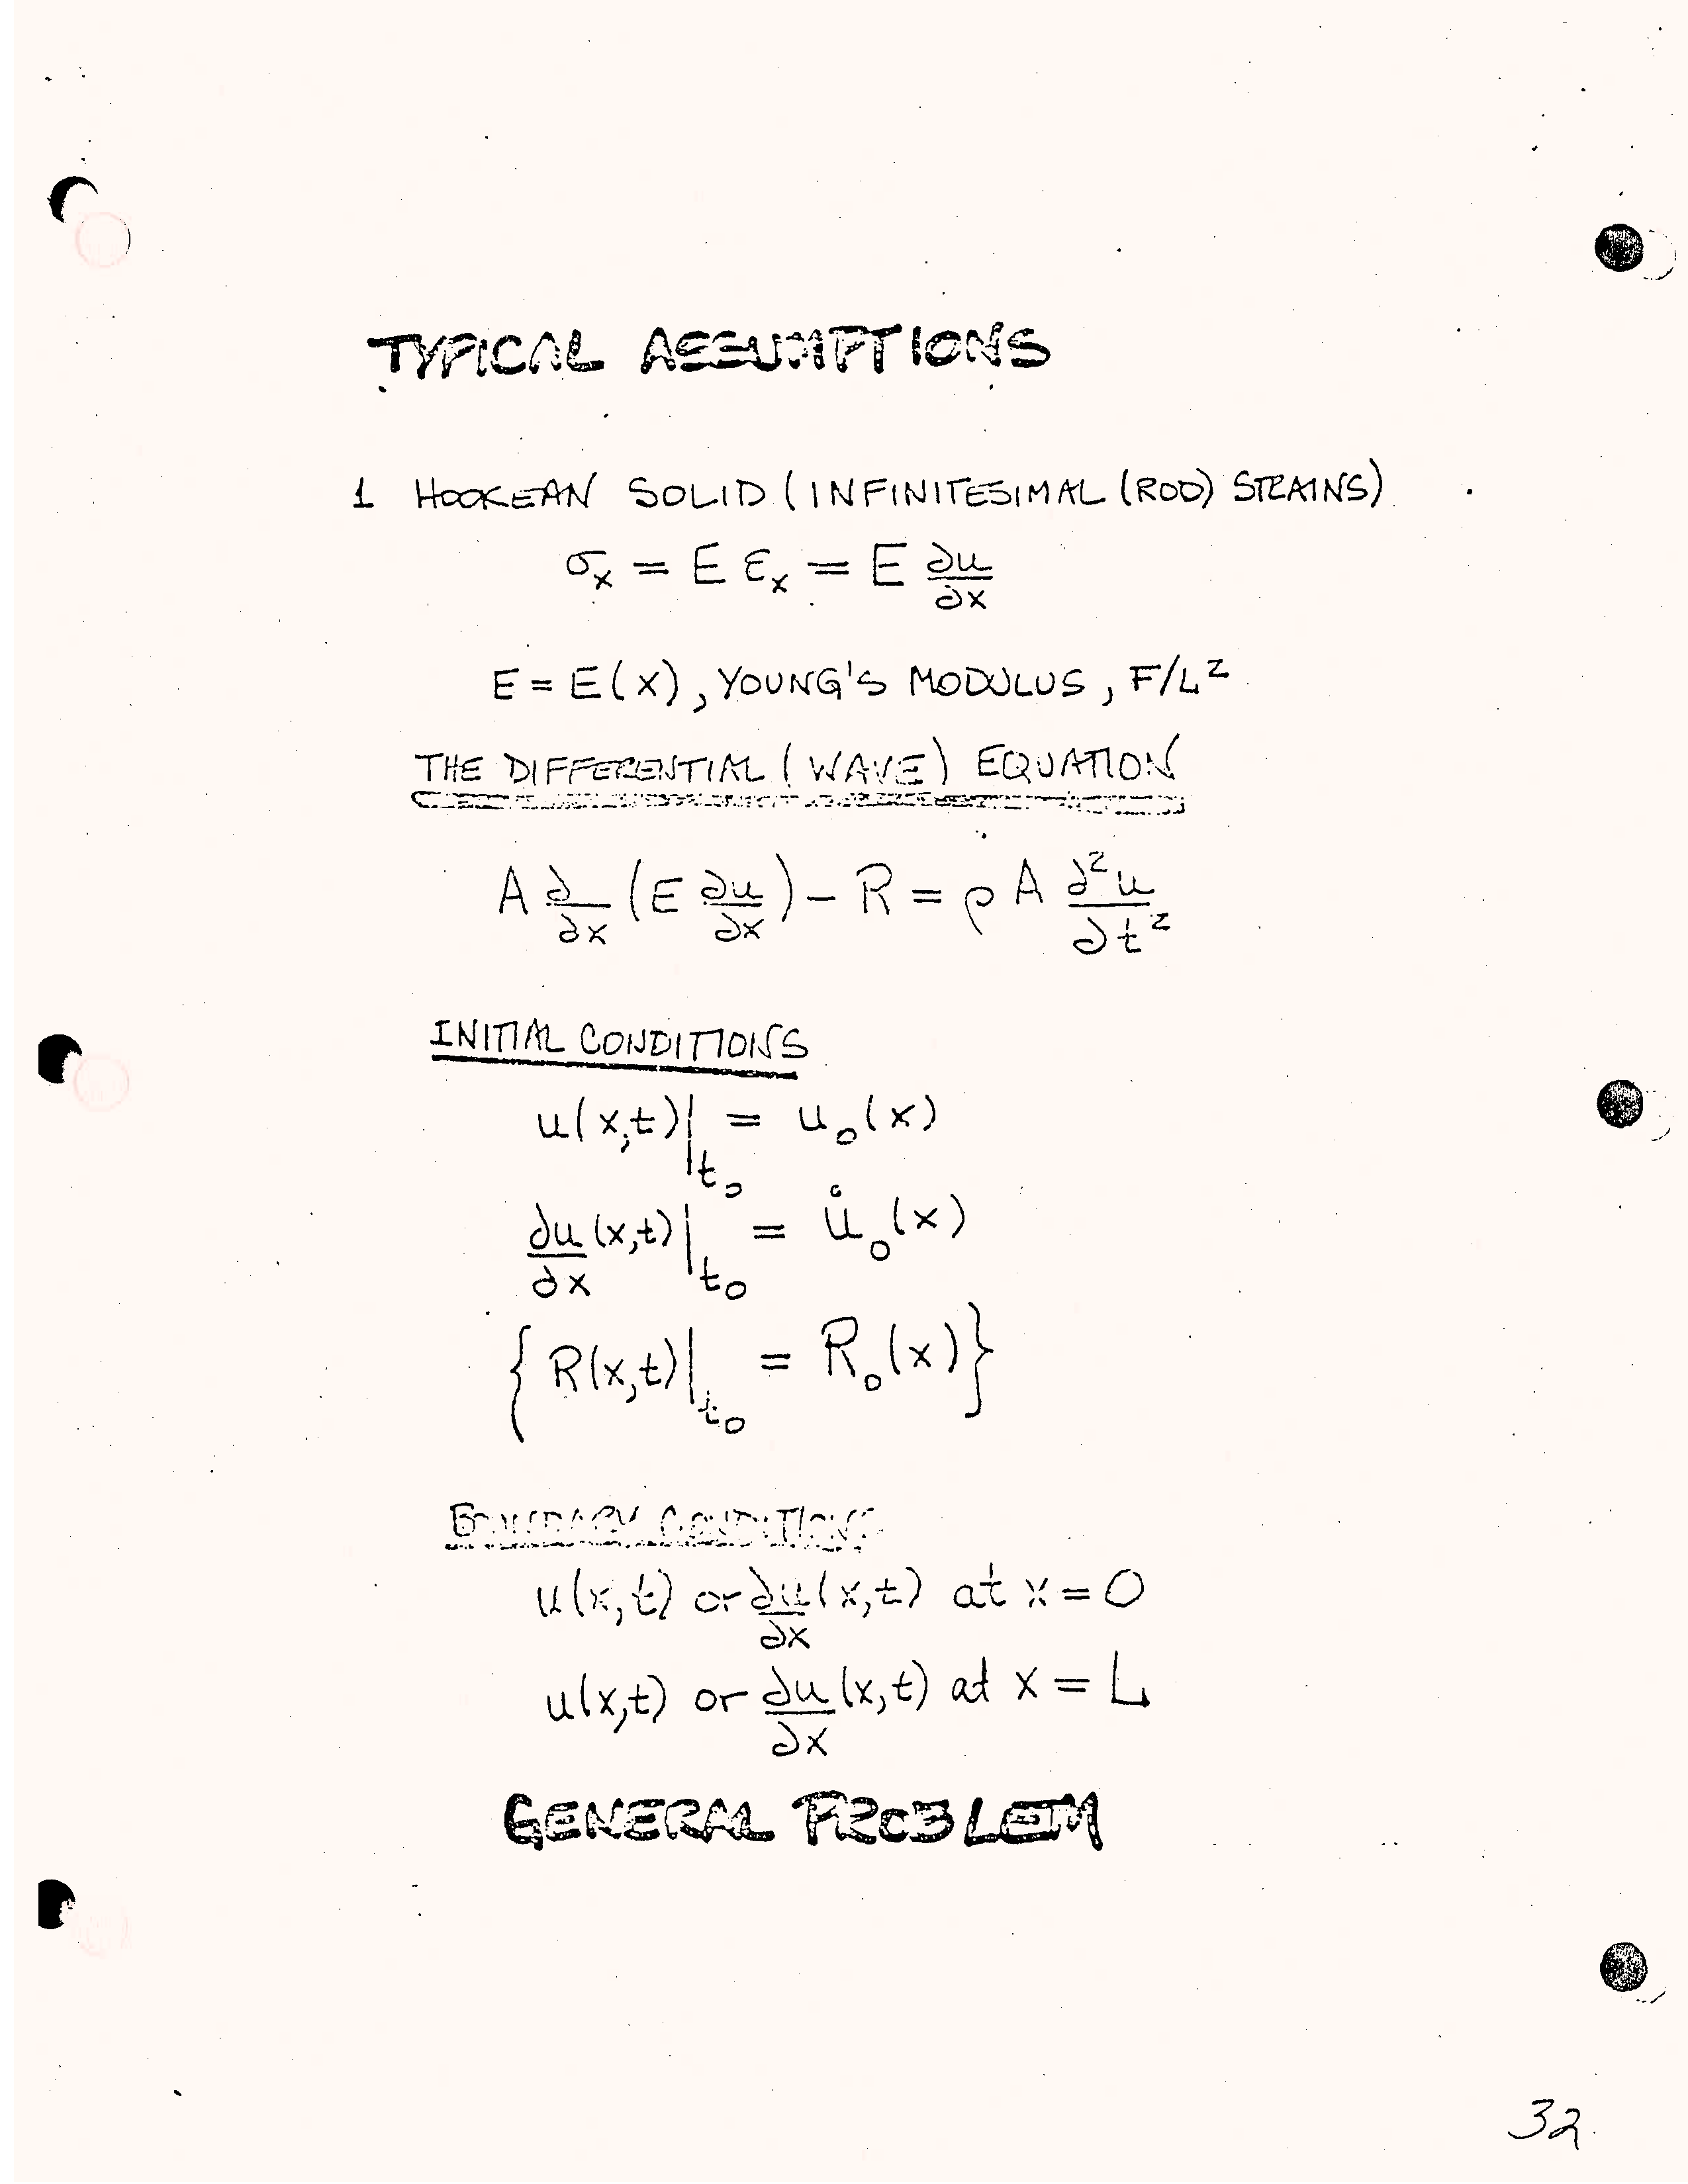 TYPICAL ASSUMPTIONS
1 HOOKEAN SOLID (INFINITESIMAL (ROD) STRAINS)
σₓ = E εₓ = E ∂u/∂x
E = E(x), YOUNG'S MODULUS, F/L²
THE DIFFERENTIAL (WAVE) EQUATION
A ∂/∂x (E ∂u/∂x) – R = ρ A ∂²u/∂t²
INITIAL CONDITIONS
u(x,t)|t₀ = u₀(x)
∂u/∂x (x,t)|t₀ = u̇₀(x)
{ R(x,t)|t₀ = R₀(x) }
BOUNDARY CONDITIONS
u(x,t) or ∂u/∂x (x,t) at x = 0
u(x,t) or ∂u/∂x (x,t) at x = L
GENERAL PROBLEM
32